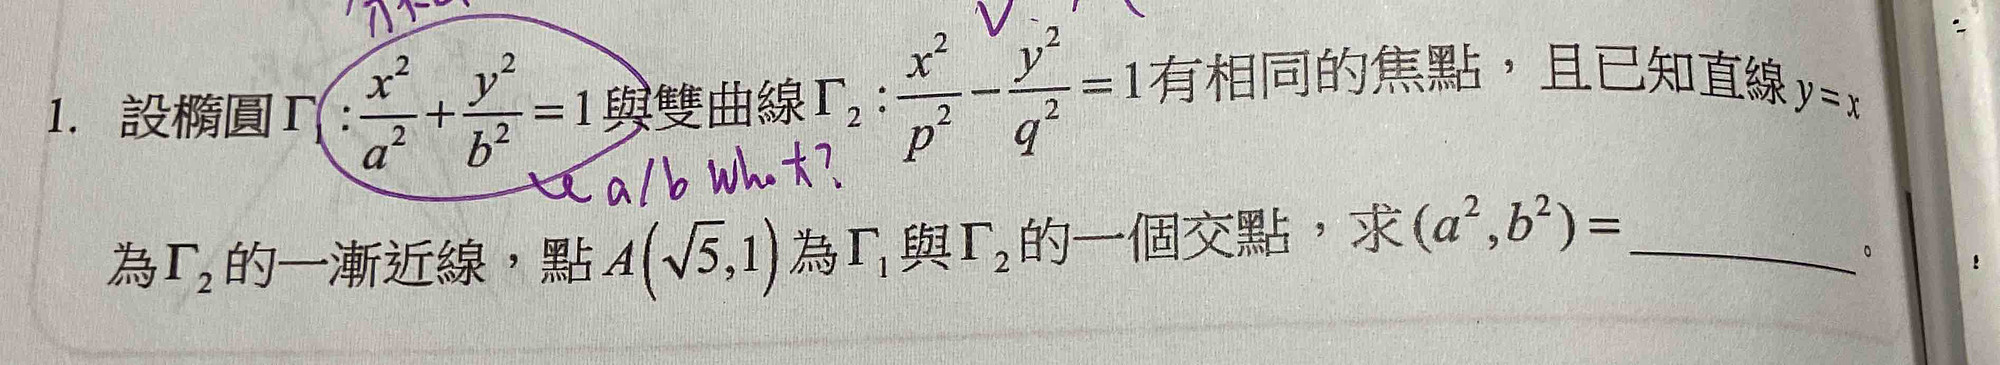 1. 設橢圓Γ₁:x²/a²+y²/b²=1與雙曲線Γ₂:x²/p²−y²/q²=1有相同的焦點,且已知直線y=x
a/b what?
為Γ₂的一漸近線,點A(√5,1)為Γ₁與Γ₂的一個交點,求(a²,b²)=______。